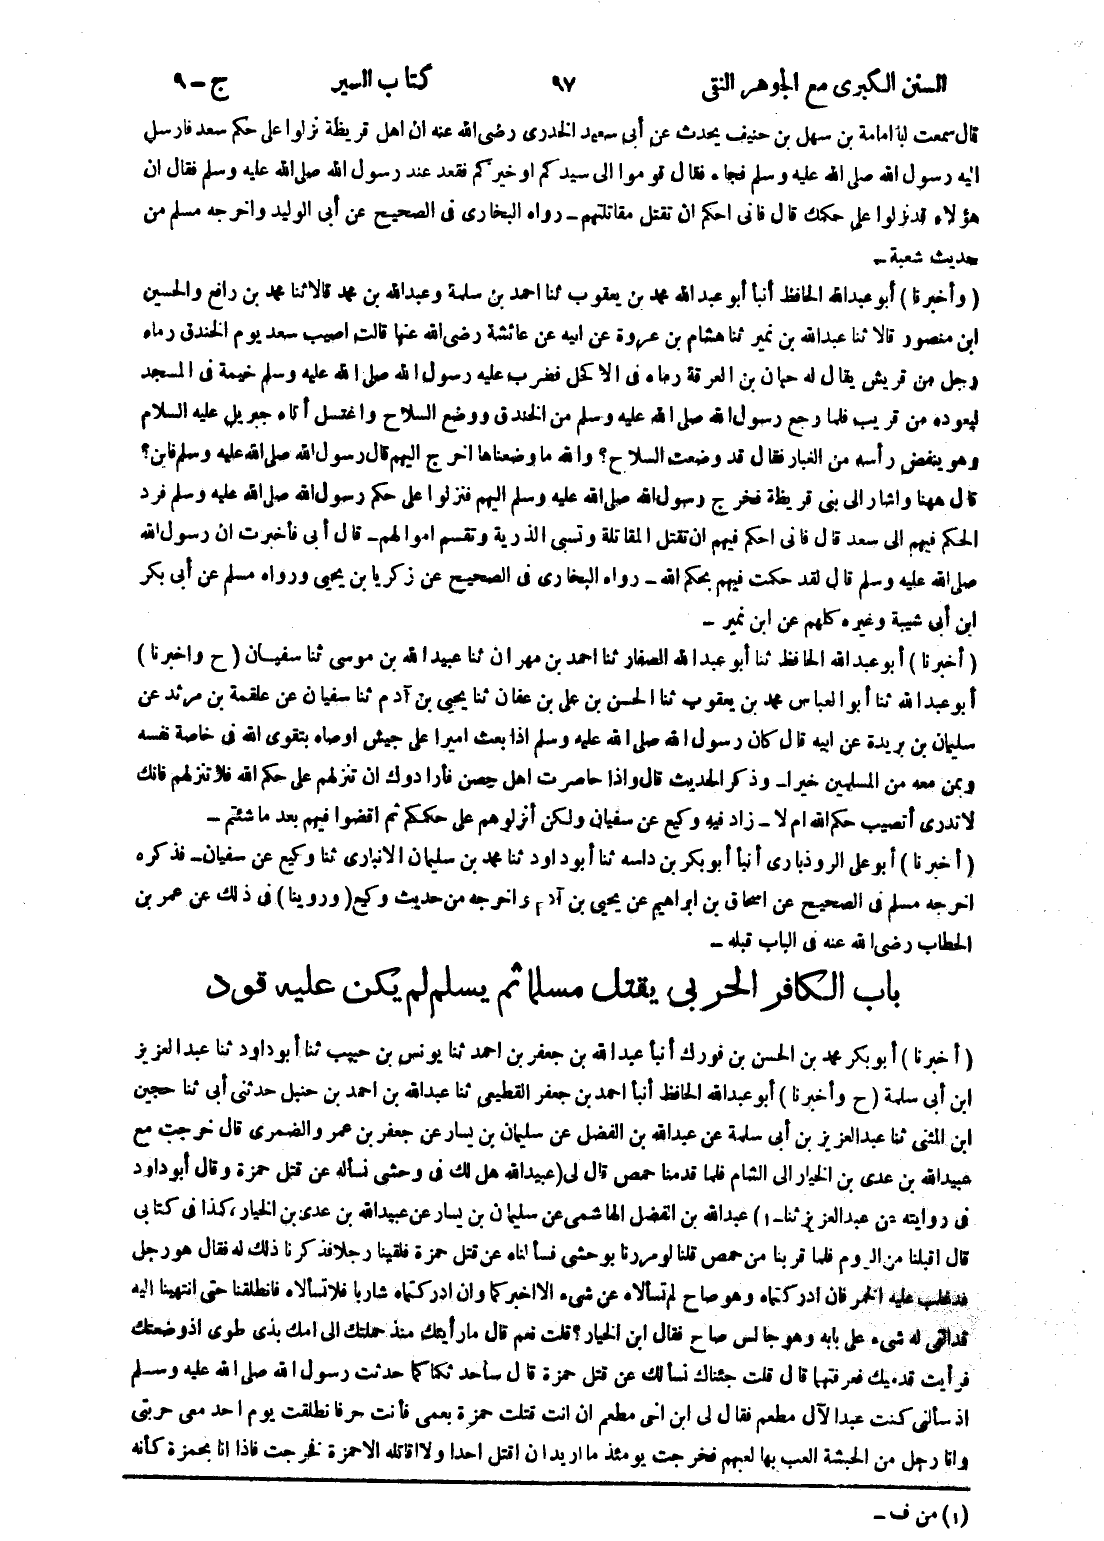 السنن الكبرى مع الجوهر النقى ٩٧ كتاب السير ج - ٩
قال سمعت ابا امامة بن سهل بن حنيف يحدث عن أبى سعيد الخدرى رضى الله عنه ان اهل قريظة نزلوا على حكم سعد فارسل
اليه رسول الله صلى الله عليه وسلم فجاء فقال قوموا الى سيدكم او خيركم فقعد عند رسول الله صلى الله عليه وسلم فقال ان
هؤلاء قد نزلوا على حكمك قال فانى احكم ان تقتل مقاتلتهم - رواه البخارى فى الصحيح عن أبى الوليد واخرجه مسلم من
حديث شعبة -
(وأخبرنا) أبو عبدالله الحافظ أنبأ أبو عبدالله محمد بن يعقوب ثنا احمد بن سلمة وعبدالله بن محمد قالا ثنا محمد بن رافع والحسين
ابن منصور قالا ثنا عبدالله بن نمير ثنا هشام بن عروة عن ابيه عن عائشة رضى الله عنها قالت اصيب سعد يوم الخندق رماه
رجل من قريش يقال له حبان بن العرقة رماه فى الاكحل فضرب عليه رسول الله صلى الله عليه وسلم خيمة فى المسجد
ليعوده من قريب فلما رجع رسول الله صلى الله عليه وسلم من الخندق ووضع السلاح واغتسل أتاه جبريل عليه السلام
وهو ينفض رأسه من الغبار فقال قد وضعت السلاح؟ والله ما وضعناها اخرج اليهم قال رسول الله صلى الله عليه وسلم فاين؟
قال ههنا واشار الى بنى قريظة فخرج رسول الله صلى الله عليه وسلم اليهم فنزلوا على حكم رسول الله صلى الله عليه وسلم فرد
الحكم فيهم الى سعد قال فانى احكم فيهم ان تقتل المقاتلة وتسبى الذرية وتقسم اموالهم - قال أبى فأخبرت ان رسول الله
صلى الله عليه وسلم قال لقد حكمت فيهم بحكم الله - رواه البخارى فى الصحيح عن زكريا بن يحيى ورواه مسلم عن أبى بكر
ابن أبى شيبة وغيره كلهم عن ابن نمير -
(أخبرنا) أبو عبدالله الحافظ ثنا أبو عبدالله الصفار ثنا احمد بن مهران ثنا عبيدالله بن موسى ثنا سفيان (ح واخبرنا)
أبو عبدالله ثنا أبو العباس محمد بن يعقوب ثنا الحسن بن على بن عفان ثنا يحيى بن آدم ثنا سفيان عن علقمة بن مرثد عن
سليمان بن بريدة عن ابيه قال كان رسول الله صلى الله عليه وسلم اذا بعث اميرا على جيش اوصاه بتقوى الله فى خاصة نفسه
وبمن معه من المسلمين خيرا - وذكر الحديث قال واذا حاصرت اهل حصن فأرادوك ان تنزلهم على حكم الله فلا تنزلهم فانك
لا تدرى أتصيب حكم الله ام لا - زاد فيه وكيع عن سفيان ولكن أنزلوهم على حكمكم ثم اقضوا فيهم بعد ما شئتم -
(أخبرنا) أبو على الروذبارى أنبأ أبو بكر بن داسه ثنا أبو داود ثنا محمد بن سليمان الانبارى ثنا وكيع عن سفيان - فذكره
اخرجه مسلم فى الصحيح عن اسحاق بن ابراهيم عن يحيى بن آدم واخرجه من حديث وكيع (وروينا) فى ذلك عن عمر بن
الخطاب رضى الله عنه فى الباب قبله -
باب الكافر الحربى يقتل مسلما ثم يسلم لم يكن عليه قود
(أخبرنا) أبو بكر محمد بن الحسن بن فورك أنبأ عبدالله بن جعفر بن احمد ثنا يونس بن حبيب ثنا أبو داود ثنا عبدالعزيز
ابن أبى سلمة (ح وأخبرنا) أبو عبدالله الحافظ أنبأ احمد بن جعفر القطيعى ثنا عبدالله بن احمد بن حنبل حدثنى أبى ثنا حجين
ابن المثنى ثنا عبدالعزيز بن أبى سلمة عن عبدالله بن الفضل عن سليمان بن يسار عن جعفر بن عمرو الضمرى قال خرجت مع
عبيدالله بن عدى بن الخيار الى الشام فلما قدمنا حمص قال لى (عبيدالله هل لك فى وحشى نسأله عن قتل حمزة وقال أبو داود
فى روايته عن عبدالعزيز ثنا - ١) عبدالله بن الفضل الهاشمى عن سليمان بن يسار عن عبيدالله بن عدى بن الخيار، كذا فى كتابى
قال اقبلنا من الروم فلما قربنا من حمص قلنا لو مررنا بوحشى فسألناه عن قتل حمزة فلقينا رجلا فذكرنا ذلك له فقال هو رجل
قد غلب عليه الخمر فان ادركتماه وهو صاح لم تسألاه عن شىء الا اخبركما وان ادركتماه شاربا فلا تسألاه فانطلقنا حتى انتهينا اليه
قد القى له شىء على بابه وهو جالس صاح فقال ابن الخيار؟ قلت نعم قال ما رأيتك منذ حملتك الى امك بذى طوى اذ وضعتك
فرأيت قدميك فعرفتهما قال قلت جئناك نسألك عن قتل حمزة قال سأحدثكما كما حدثت رسول الله صلى الله عليه وسلم
اذ سألنى كنت عبدا لآل مطعم فقال لى ابن اخى مطعم ان انت قتلت حمزة بعمى فأنت حر فانطلقت يوم احد معى حربتى
وانا رجل من الحبشة العب بها لعبهم فخرجت يومئذ ما اريد ان اقتل احدا ولا اقاتله الا حمزة فخرجت فاذا انا بحمزة كأنه
(١) من ف -